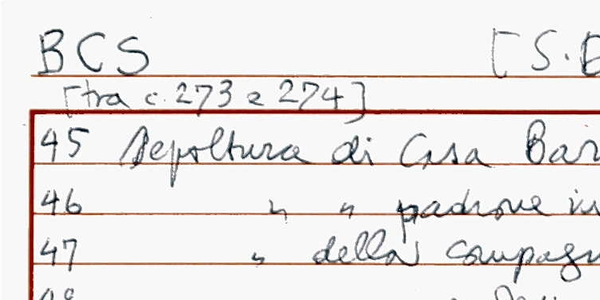 BCS [S.
[tra c. 273 e 274]
45 Sepoltura di Casa Bar
46 " " padrone in
47 " della compagn
48